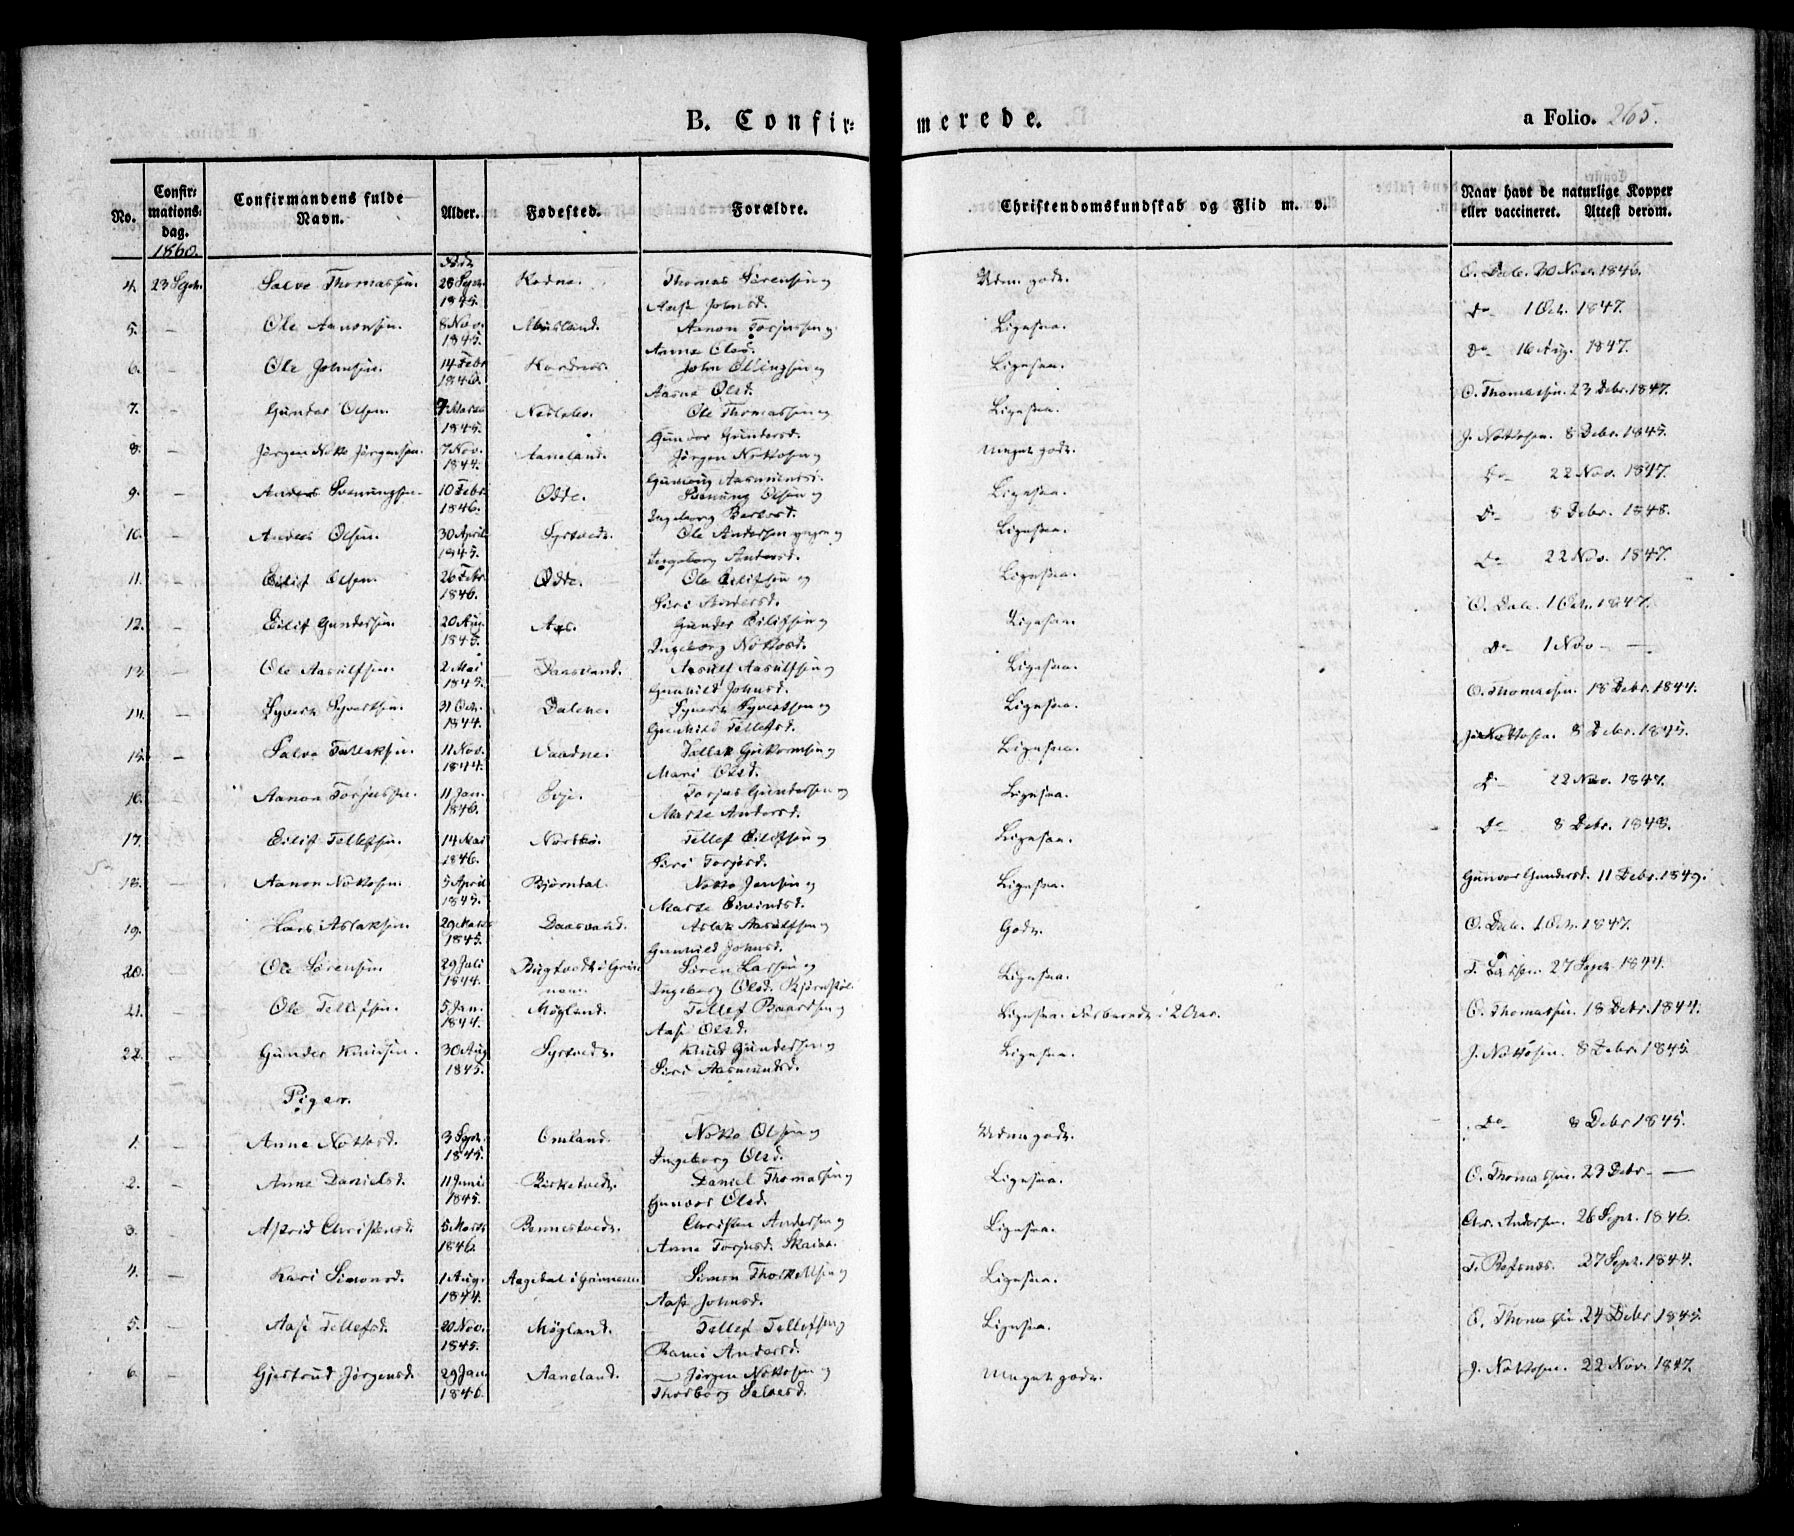 B. Confir= merede.
a Folio. 265.
No. Confir= mations= dag. Confirmandens fulde Navn. Alder. Fødested. Forældre. Christendomskundskab og Flid m. v. Naar havt de naturlige Kopper eller vaccineret. Attest derom.
1860.
4. 23 Septr. Salve Thomassen. 28 Septr. Thomas Sørensen og Uden godt. O. Dale. 20 Nov. 1846.
1845. Aase Johnsd.
5. — Ole Aanonsen. 8 Nov. Aanon Torjussen og Ligesaa. Do 1 Oct. 1847.
1845. Anne Olsd.
6. — Ole Johnsen. 14 Febr. John Ellingsen og Ligesaa. Do 16 Aug. 1847.
1846. Aasne Olsd.
7. — Gunder Olsen. 7 Marts Ole Thomassen og Ligesaa. O. Thomassen. 23 Debr. 1847.
1845. Gunvor Gundersd.
8. — Jørgen Notto Jørgensen. 7 Nov. Aaneland. Jørgen Nottosen og Meget godt. J. Nottosen. 8 Debr. 1845.
1844. Gunvor Aasmundsd.
9. — Anders Svenungsen. 10 Febr. Odde. Svenung Olsen og Ligesaa. Do 22 Nov. 1847.
1846. Ingeborg
10. — Anders Olsen. 30 April Syrtvedt. Ole Andersen yngre og Ligesaa. Do 8 Debr. 1848.
1845. Ingeborg Andersd.
11. — Eilif Olsen. 26 Febr. Odde. Ole Eilifsen og Ligesaa. Do 22 Nov. 1847.
1846. Siri Andersd.
12. — Eilif Gundersen. 20 Aug. Aas. Gunder Eilifsen og Ligesaa. O. Dale. 1 Oct. 1847.
1845. Ingeborg Nottosd.
13. — Ole Aasulfsen. 2 Mai Daasvand. Aasulf Aasulfsen og Ligesaa. Do 1 Nov. —
1845. Gunhild Johnsd.
14. — Syvert Syvertsen. 31 Oct. Dalene. Syvert Syvertsen og Ligesaa. O. Thomassen. 18 Debr. 1844.
1844. Gunhild Tellefsd.
15. — Salve Tallaksen. 11 Nov. Tallak Guttormsen og Ligesaa. J. Nottosen. 8 Debr. 1845.
1844. Mari Olsd.
16. — Aanon Torjussen. 11 Jan. Evje. Torjus Gundersen og Ligesaa. Do 22 Nov. 1847.
1846. Marte Andersd.
17. — Eilif Tellefsen. 14 Mai Tellef Eilifsen og Ligesaa. Do 8 Debr. 1848.
1846. Siri Torjusd.
18. — Aanon Nottosen. 5 April Bjørndal. Notto Jensen og Ligesaa. Gunvor Gundersd. 11 Debr. 1849.
1845. Marte Eivindsd.
19. — Hans Aslaksen. 29 Marts Daasvand. Aslak Aasulfsen og Godt. O. Dale. 1 Oct. 1847.
1845. Gunhild Johnsd.
20. — Ole Sørensen. 29 Juli Bugtvedt i Grim- Søren Larsen og Ligesaa. T. 27 Septr. 1844.
1844. Ingeborg Olsd.
21. — Ole Tellefsen. 5 Jan. Møgland. Tellef Baardsen og Ligesaa. Forberedt i 2 Aar. O. Thomassen. 18 Debr. 1844.
1844. Aase Olsd.
22. — Gunder Knudsen. 30 Aug. Syrtvedt. Knud Gundersen og Ligesaa. J. Nottosen. 8 Debr. 1845.
1845. Siri Aasmundsd.
Piger.
1. — Anne Nottosd. 3 Septr. Omland. Notto Olsen og Uden godt. Do 8 Debr 1845.
1845. Ingeborg Olsd.
2. — Anne Danielsd. 11 Juni Birketvedt. Daniel Thomassen og Ligesaa. O. Thomassen. 23 Debr. —
1845. Gunvor Olsd.
3. — Astrid Christensd. 5 Marts Bennestvedt. Christen Andersen og Ligesaa. Chr. Andersen. 26 Septr. 1846.
1846. Anne Torjusd.
4. — Kari Simonsd. 1 Aug. Simon Thorkelsen og Ligesaa. T. Refsnæs. 27 Septr. 1844.
1844. Aase Johnsd.
5. — Aase Tellefsd. 20 Nov. Møgland. Tellef Tellefsen og Ligesaa. O. Thomassen. 24 Debr 1845.
1845. Andersd.
6. — Gjertrud Jørgensd. 29 Jan. Aaneland. Jørgen Nottosen og Meget godt. J. Nottosen. 22 Nov. 1847.
1846. Thorborg Salvesd.